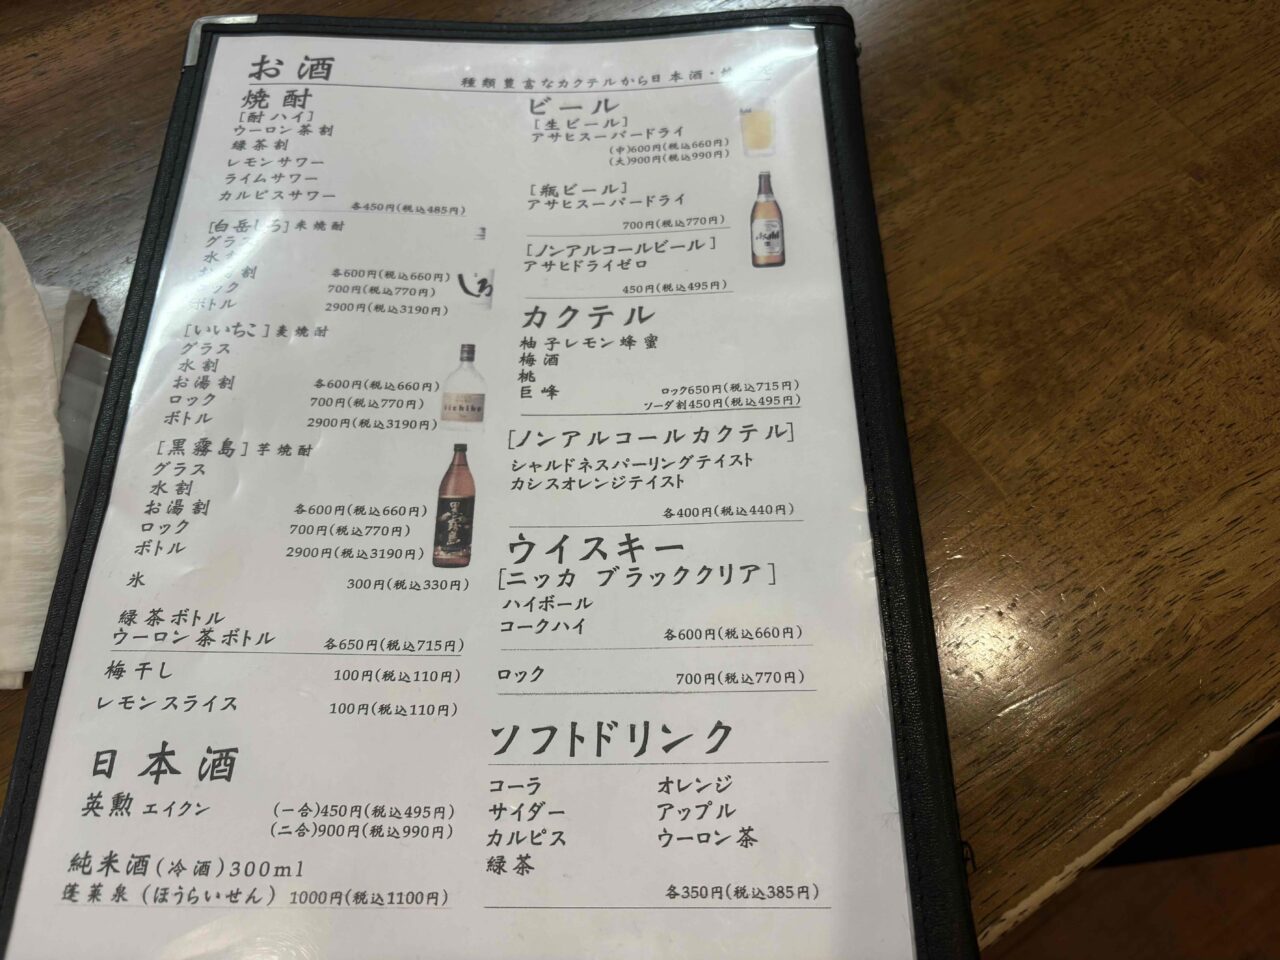 お酒
種類豊富なカクテルから日本酒・
焼酎
[酎ハイ]
ウーロン茶割
緑茶割
レモンサワー
ライムサワー
カルピスサワー
各450円(税込485円)
[白岳しろ]米焼酎
グラス
水割
お湯割 各600円(税込660円)
ロック 700円(税込770円)
ボトル 2900円(税込3190円)
しろ
[いいちこ]麦焼酎
グラス
水割
お湯割 各600円(税込660円)
ロック 700円(税込770円)
ボトル 2900円(税込3190円)
iichiko
[黒霧島]芋焼酎
グラス
水割
お湯割 各600円(税込660円)
ロック 700円(税込770円)
ボトル 2900円(税込3190円)
黒霧島
氷 300円(税込330円)
緑茶ボトル
ウーロン茶ボトル 各650円(税込715円)
梅干し 100円(税込110円)
レモンスライス 100円(税込110円)
日本酒
英勲 エイクン (一合)450円(税込495円)
(二合)900円(税込990円)
純米酒(冷酒)300ml
蓬莱泉(ほうらいせん) 1000円(税込1100円)
ビール
[生ビール]
アサヒスーパードライ
(中)600円(税込660円)
(大)900円(税込990円)
[瓶ビール]
アサヒスーパードライ
700円(税込770円)
Asahi
[ノンアルコールビール]
アサヒドライゼロ
450円(税込495円)
カクテル
柚子レモン蜂蜜
梅酒
桃
巨峰 ロック650円(税込715円)
ソーダ割450円(税込495円)
[ノンアルコールカクテル]
シャルドネスパーリングテイスト
カシスオレンジテイスト
各400円(税込440円)
ウイスキー
[ニッカ ブラッククリア]
ハイボール
コークハイ 各600円(税込660円)
ロック 700円(税込770円)
ソフトドリンク
コーラ オレンジ
サイダー アップル
カルピス ウーロン茶
緑茶
各350円(税込385円)